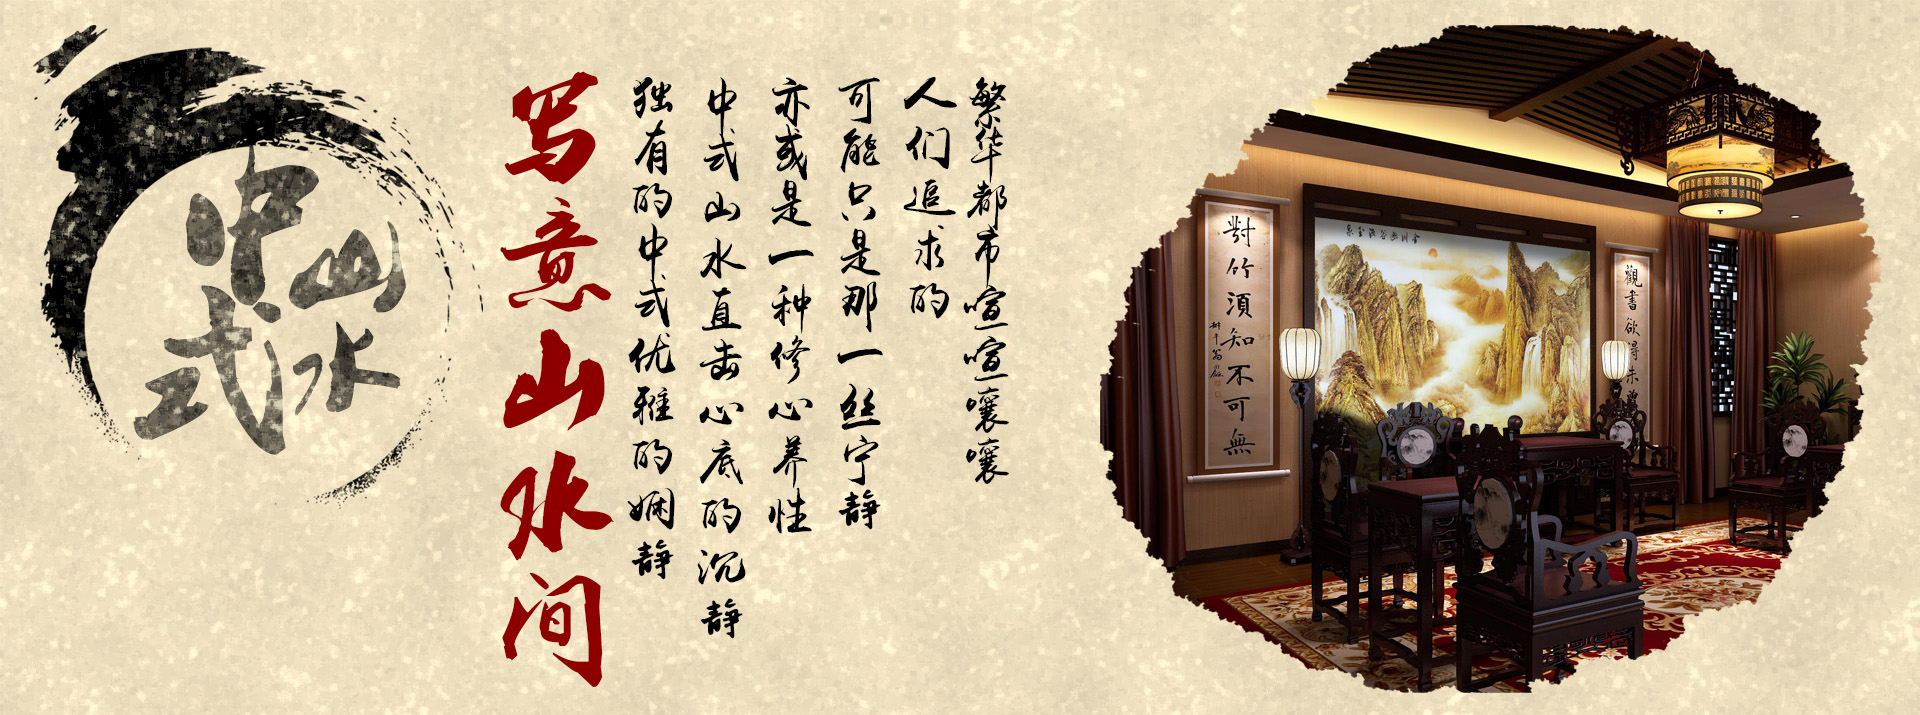 中式
山水
写意山水间
繁华都市喧喧嚷嚷
人们追求的
可能只是那一丝宁静
亦或是一种修心养性
中式山水直击心底的沉静
独有的中式优雅的娴静
對竹須知不可無
觀書欲得未